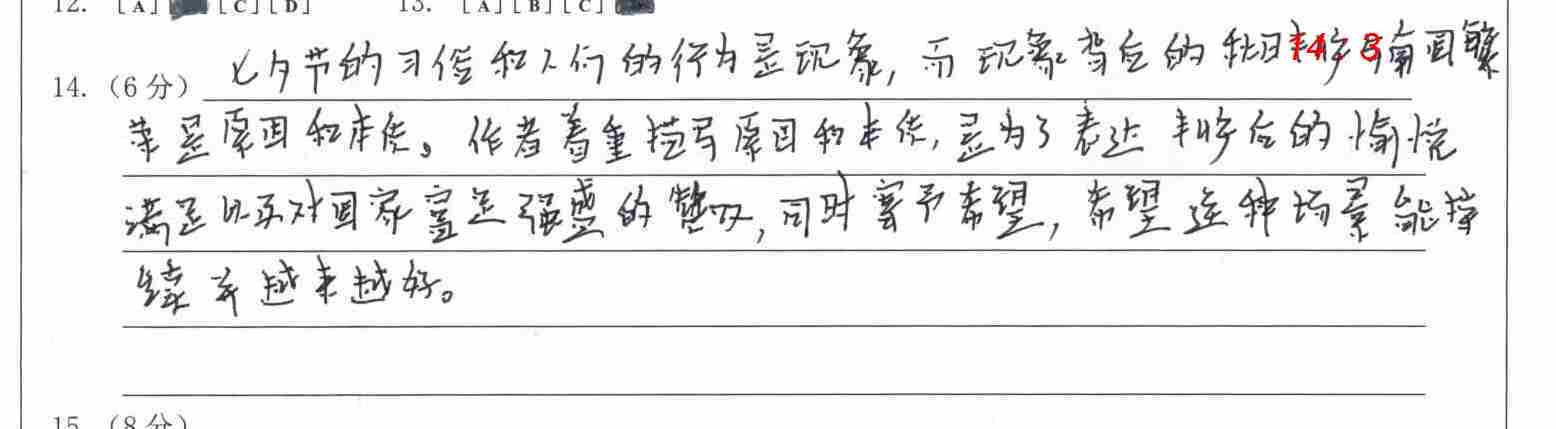 12. [A] [C] [D] 13. [A] [B] [C]
14.(6分) 七夕节的习俗和人们的行为是现象,而现象背后的秋日丰收与南国繁
荣是原因和本质。作者着重描写原因和本质,是为了表达丰收后的愉悦
满足以及对国家富足强盛的赞叹,同时寄予希望,希望这种场景能持
续并越来越好。
14 3
15.(8分)